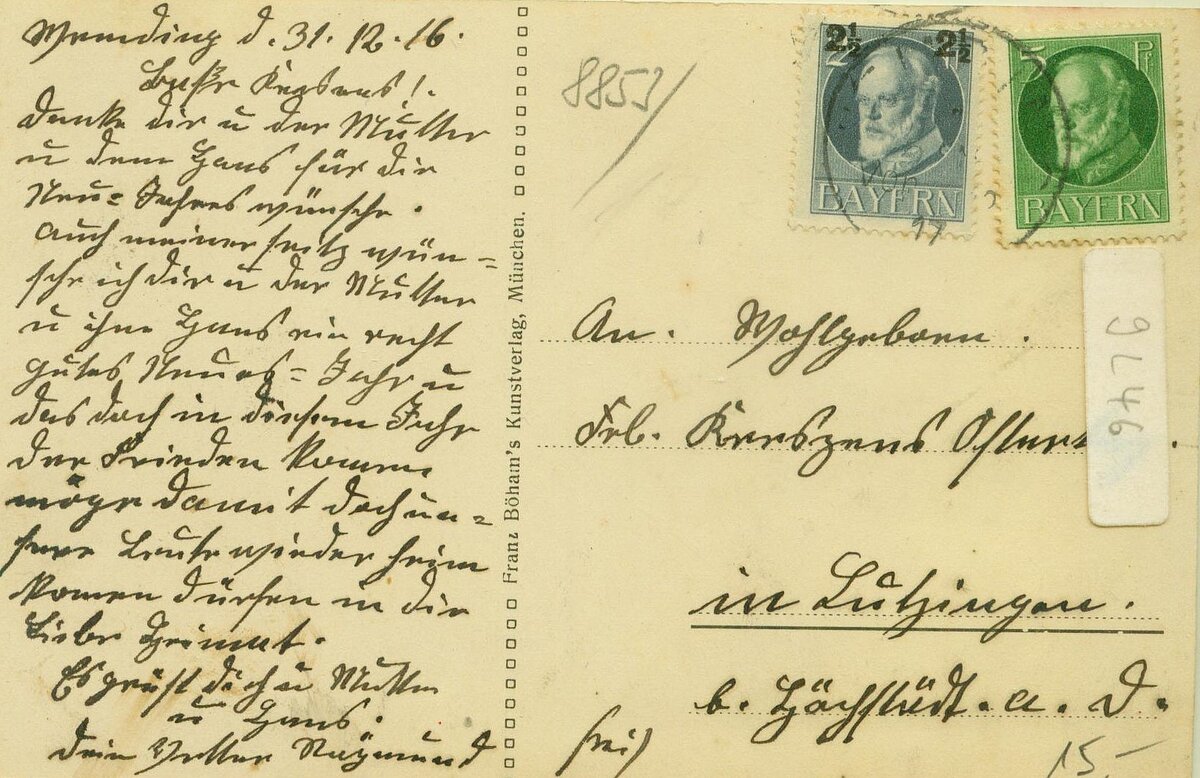 Wemding d. 31.12.16.
Kreszens!
danke dir u der Mutter
u dem Hans für die
Neu=Jahres wünsche.
auch meinerseitz wün=
sche ich dir u der Mutter
u ihne Hans ein recht
gutes Neues=Jahr u
das doch in diesem Jahr
der Frieden komme
möge damit doch un=
sere Leute wieder heim
komen dürfen in die
Liebe Heimat.
Es grüst dich u Mutter
u Hans.
dein Vetter Raymund
Franz Böhain's Kunstverlag, München.
8853/
2½ 2½
BAYERN
5 Pf
BAYERN
An. Wohlgeboren.
Frl. Kreszens Ostert
in Lutzingen.
b. Höchstädt. a. D.
frei
15-
9L46